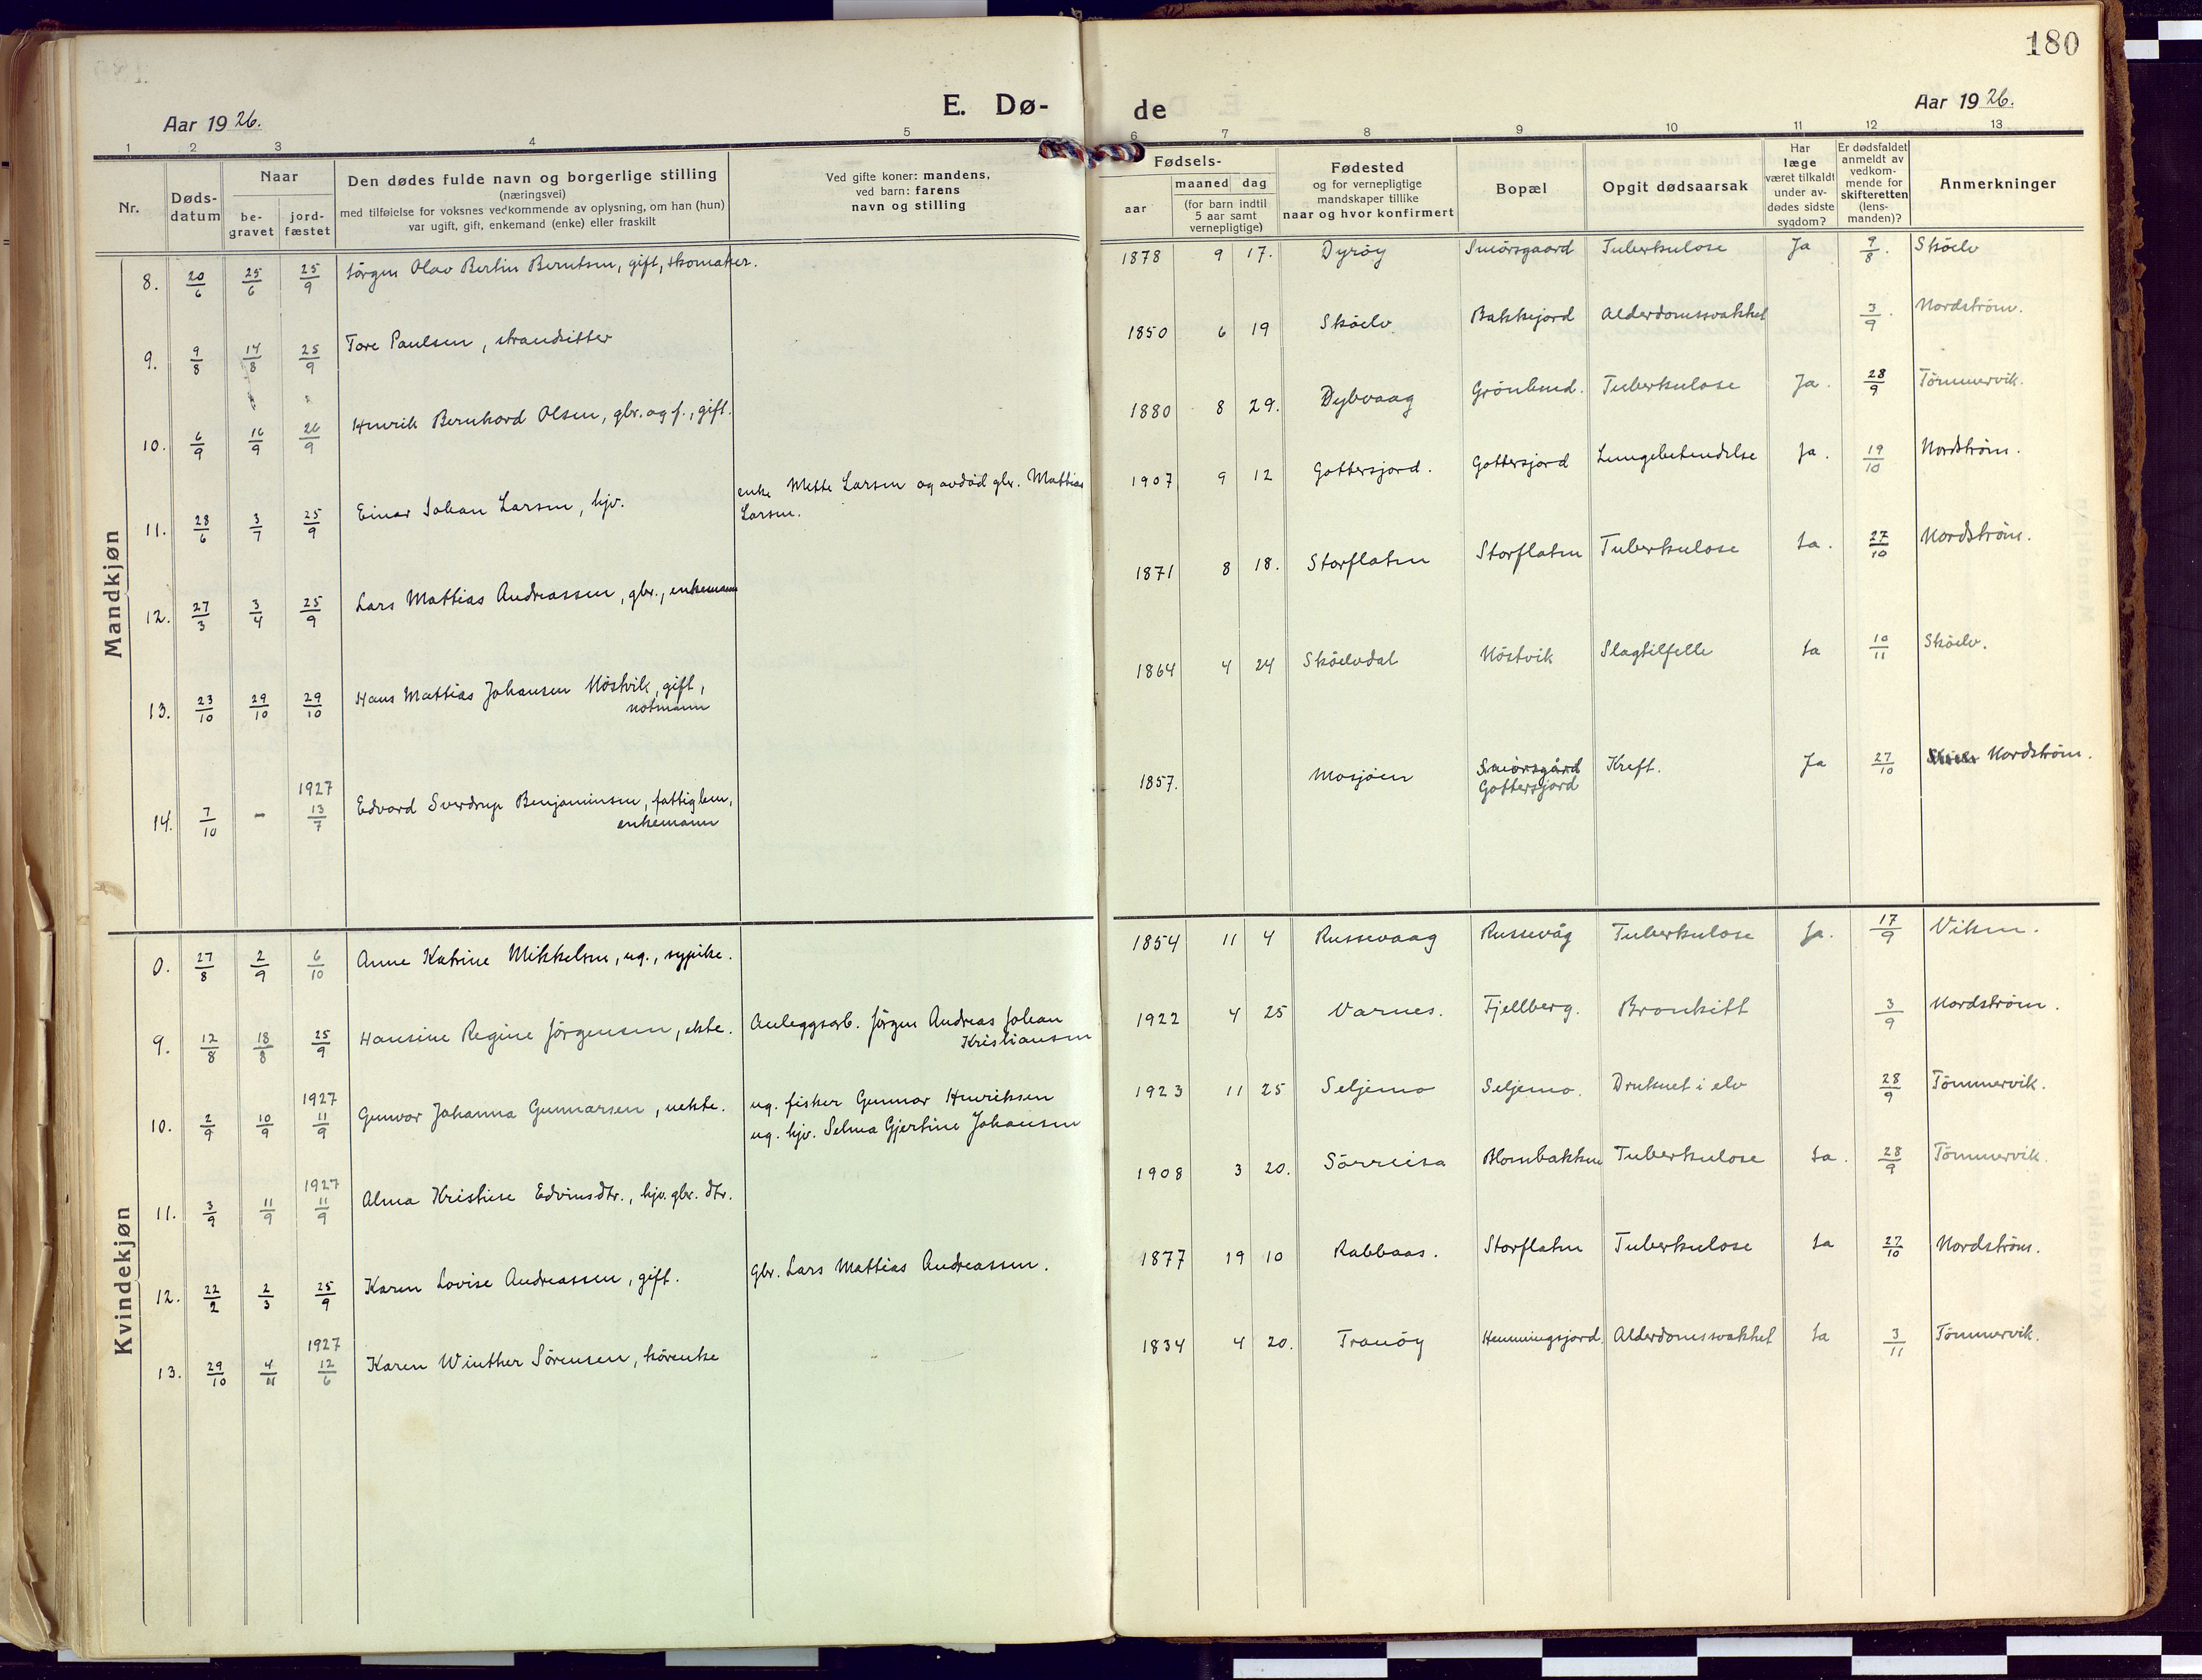 180
Aar 1926.
E. Dø-
de
Aar 1926.
1 2 3 4 5 6 7 8 9 10 11 12 13
Nr.
Døds-
datum
Naar
be-
gravet
jord-
fæstet
Den dødes fulde navn og borgerlige stilling
(næringsvei)
med tilføielse for voksnes vedkommende av oplysning, om han (hun)
var ugift, gift, enkemand (enke) eller fraskilt
Ved gifte koner: mandens,
ved barn: farens
navn og stilling
Fødsels-
aar
maaned dag
(for barn indtil
5 aar samt
vernepligtige)
Fødested
og for vernepligtige
mandskaper tillike
naar og hvor konfirmert
Bopæl
Opgit dødsaarsak
Har
læge
været tilkaldt
under av-
dødes sidste
sygdom?
Er dødsfaldet
anmeldt av
vedkom-
mende for
skifteretten
(lens-
manden)?
Anmerkninger
Mandkjøn
8. 20/6 25/6 25/9 Jörgen Olav Bertin Berntsen, gift, skomaker. 1878 9 17. Dyröy Smörsgaard Tuberkulose Ja 9/8. Sköelv
9. 9/8 14/8 25/9 Tore Paulsen, strandsitter 1850 6 19 Sköelv Bakkejord Alderdomssvakhet 3/9. Nordström.
10. 6/9 16/9 26/9 Henrik Bernhard Olsen, gbr. og f., gift. 1880 8 29. Dybvaag Grönlund. Tuberkulose Ja. 28/9 Tömmervik.
11. 28/6 3/7 25/9 Einar Johan Larsen, hjv. enke Mette Larsen og avdöd gbr. Mattias
Larsen. 1907 9 12 Gottersjord. Gottersjord Lungebetendelse Ja. 19/10 Nordström.
12. 27/3 3/4 25/9 Lars Mattias Andreassen, gbr., enkemann 1871 8 18. Storflaten Storflaten Tuberkulose Ja. 27/10 Nordström.
13. 23/10 29/10 29/10 Hans Mattias Johansen Nöstvik, gift,
notmann 1864 4 24 Sköelvdal Nöstvik Slagtilfelle Ja 10/11 Sköelv.
14. 7/10 - 1927 13/7 Edvard Sverdrup Benjaminsen, fattiglem,
enkemann 1857. Mosjöen Smörsgård
Gottersjord Kreft. Ja 27/10 Nordström.
Kvindekjøn
27/8 2/9 6/10 Anne Katrine Mikkelsen, ug., sypike. 1854 11 4 Russevaag Russevåg Tuberkulose Ja. 17/9 Viken.
9. 12/8 18/8 25/9 Hansine Regine Jörgensen, ekte. Anleggsarb. Jörgen Andreas Johan
Kristiansen 1922 4 25 Varnes. Fjellberg. Bronkitt 3/9 Nordström.
10. 2/9 10/9 1927 11/9 Gunvor Johanna Gunnarsen, uekte. ug. fisker Gunnar Henriksen
ug. hjv. Selma Gjertine Johansen 1923 11 25 Seljemo Seljemo. Druknet i elv 28/9 Tömmervik.
11. 3/9 11/9 1927 11/9 Alma Kristine Edvinsdtr., hjv. gbr. dtr. 1908 3 20. Sörreisa Blombakken Tuberkulose Ja. 28/9 Tömmervik.
12. 22/2 2/3 25/9 Karen Lovise Andreassen, gift. Gbr. Lars Mattias Andreassen. 1877 19 10 Rabbaas. Storflaten Tuberkulose Ja 27/10 Nordström.
13. 29/10 4/11 1927 12/6 Karen Winther Sörensen, kårenke 1834 4 20. Tranöy Hemmingsjord. Alderdomssvakhet Ja 3/11 Tömmervik.